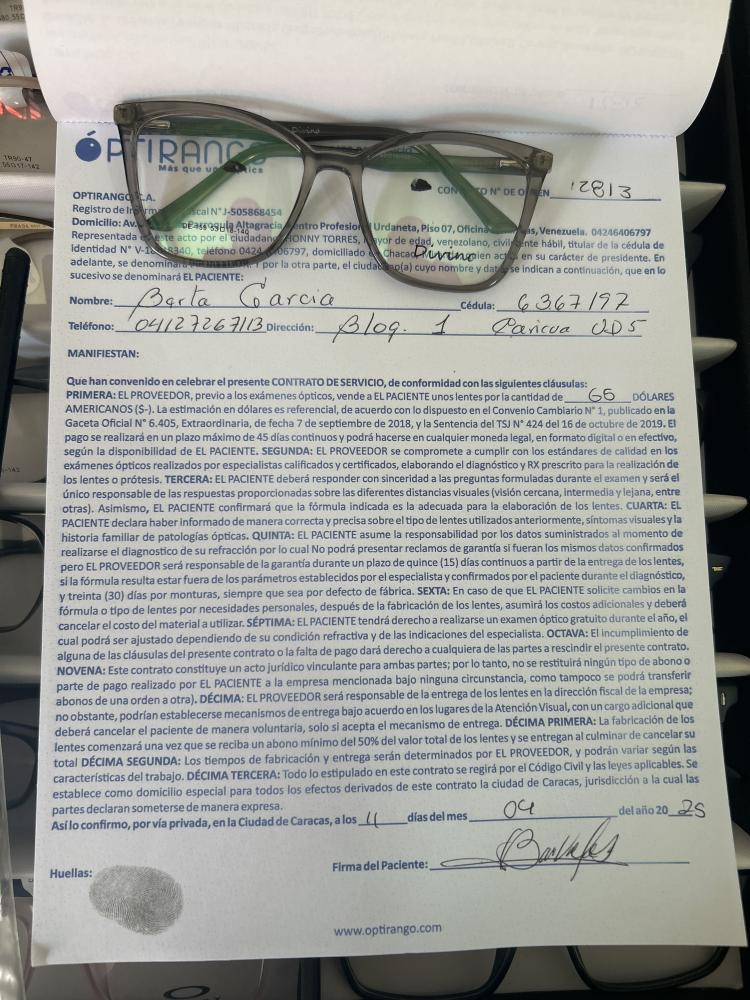 TR90-47
55□17-142
ÓPTIRANGO
Más que un óptics
Divino
CON TO N° DE O EN 12813
OPTIRANGO C.A.
Registro de Infor scal N°J-505868454
Domicilio: Av. sula Altagracia entro Profesion Urdaneta, Piso 07, Oficina as, Venezuela. 04246406797
Representada este acto por el ciudadan HONNY TORRES, ayor de edad, venezolano, civil nte hábil, titular de la cédula de
Identidad N° V-1 8340, teléfono 0424 06797, domiciliado Chacao, ien act en su carácter de presidente. En
Divino
adelante, se denominará por la otra parte, el ciudad no(a) cuyo nombre y dat se indican a continuación, que en lo
sucesivo se denominará EL PACIENTE:
Nombre: Barta Garcia Cédula: 6367197
Teléfono: 04127267113 Dirección: Bloq. 1 Caricua UD5
MANIFIESTAN:
Que han convenido en celebrar el presente CONTRATO DE SERVICIO, de conformidad con las siguientes cláusulas:
PRIMERA: EL PROVEEDOR, previo a los exámenes ópticos, vende a EL PACIENTE unos lentes por la cantidad de 65 DÓLARES
AMERICANOS ($-). La estimación en dólares es referencial, de acuerdo con lo dispuesto en el Convenio Cambiario N° 1, publicado en la
Gaceta Oficial N° 6.405, Extraordinaria, de fecha 7 de septiembre de 2018, y la Sentencia del TSJ N° 424 del 16 de octubre de 2019. El
pago se realizará en un plazo máximo de 45 días continuos y podrá hacerse en cualquier moneda legal, en formato digital o en efectivo,
según la disponibilidad de EL PACIENTE. SEGUNDA: EL PROVEEDOR se compromete a cumplir con los estándares de calidad en los
exámenes ópticos realizados por especialistas calificados y certificados, elaborando el diagnóstico y RX prescrito para la realización de
los lentes o prótesis. TERCERA: EL PACIENTE deberá responder con sinceridad a las preguntas formuladas durante el examen y será el
único responsable de las respuestas proporcionadas sobre las diferentes distancias visuales (visión cercana, intermedia y lejana, entre
otras). Asimismo, EL PACIENTE confirmará que la fórmula indicada es la adecuada para la elaboración de los lentes. CUARTA: EL
PACIENTE declara haber informado de manera correcta y precisa sobre el tipo de lentes utilizados anteriormente, síntomas visuales y la
historia familiar de patologías ópticas. QUINTA: EL PACIENTE asume la responsabilidad por los datos suministrados al momento de
realizarse el diagnostico de su refracción por lo cual No podrá presentar reclamos de garantía si fueran los mismos datos confirmados
pero EL PROVEEDOR será responsable de la garantía durante un plazo de quince (15) días continuos a partir de la entrega de los lentes,
si la fórmula resulta estar fuera de los parámetros establecidos por el especialista y confirmados por el paciente durante el diagnóstico,
y treinta (30) días por monturas, siempre que sea por defecto de fábrica. SEXTA: En caso de que EL PACIENTE solicite cambios en la
fórmula o tipo de lentes por necesidades personales, después de la fabricación de los lentes, asumirá los costos adicionales y deberá
cancelar el costo del material a utilizar. SÉPTIMA: EL PACIENTE tendrá derecho a realizarse un examen óptico gratuito durante el año, el
cual podrá ser ajustado dependiendo de su condición refractiva y de las indicaciones del especialista. OCTAVA: El incumplimiento de
alguna de las cláusulas del presente contrato o la falta de pago dará derecho a cualquiera de las partes a rescindir el presente contrato.
NOVENA: Este contrato constituye un acto jurídico vinculante para ambas partes; por lo tanto, no se restituirá ningún tipo de abono o
parte de pago realizado por EL PACIENTE a la empresa mencionada bajo ninguna circunstancia, como tampoco se podrá transferir
abonos de una orden a otra). DÉCIMA: EL PROVEEDOR será responsable de la entrega de los lentes en la dirección fiscal de la empresa;
no obstante, podrían establecerse mecanismos de entrega bajo acuerdo en los lugares de la Atención Visual, con un cargo adicional que
deberá cancelar el paciente de manera voluntaria, solo si acepta el mecanismo de entrega. DÉCIMA PRIMERA: La fabricación de los
lentes comenzará una vez que se reciba un abono mínimo del 50% del valor total de los lentes y se entregan al culminar de cancelar su
total DÉCIMA SEGUNDA: Los tiempos de fabricación y entrega serán determinados por EL PROVEEDOR, y podrán variar según las
características del trabajo. DÉCIMA TERCERA: Todo lo estipulado en este contrato se regirá por el Código Civil y las leyes aplicables. Se
establece como domicilio especial para todos los efectos derivados de este contrato la ciudad de Caracas, jurisdicción a la cual las
partes declaran someterse de manera expresa.
Así lo confirmo, por vía privada, en la Ciudad de Caracas, a los 11 días del mes 04 del año 20 25
Huellas:
Firma del Paciente:
www.optirango.com